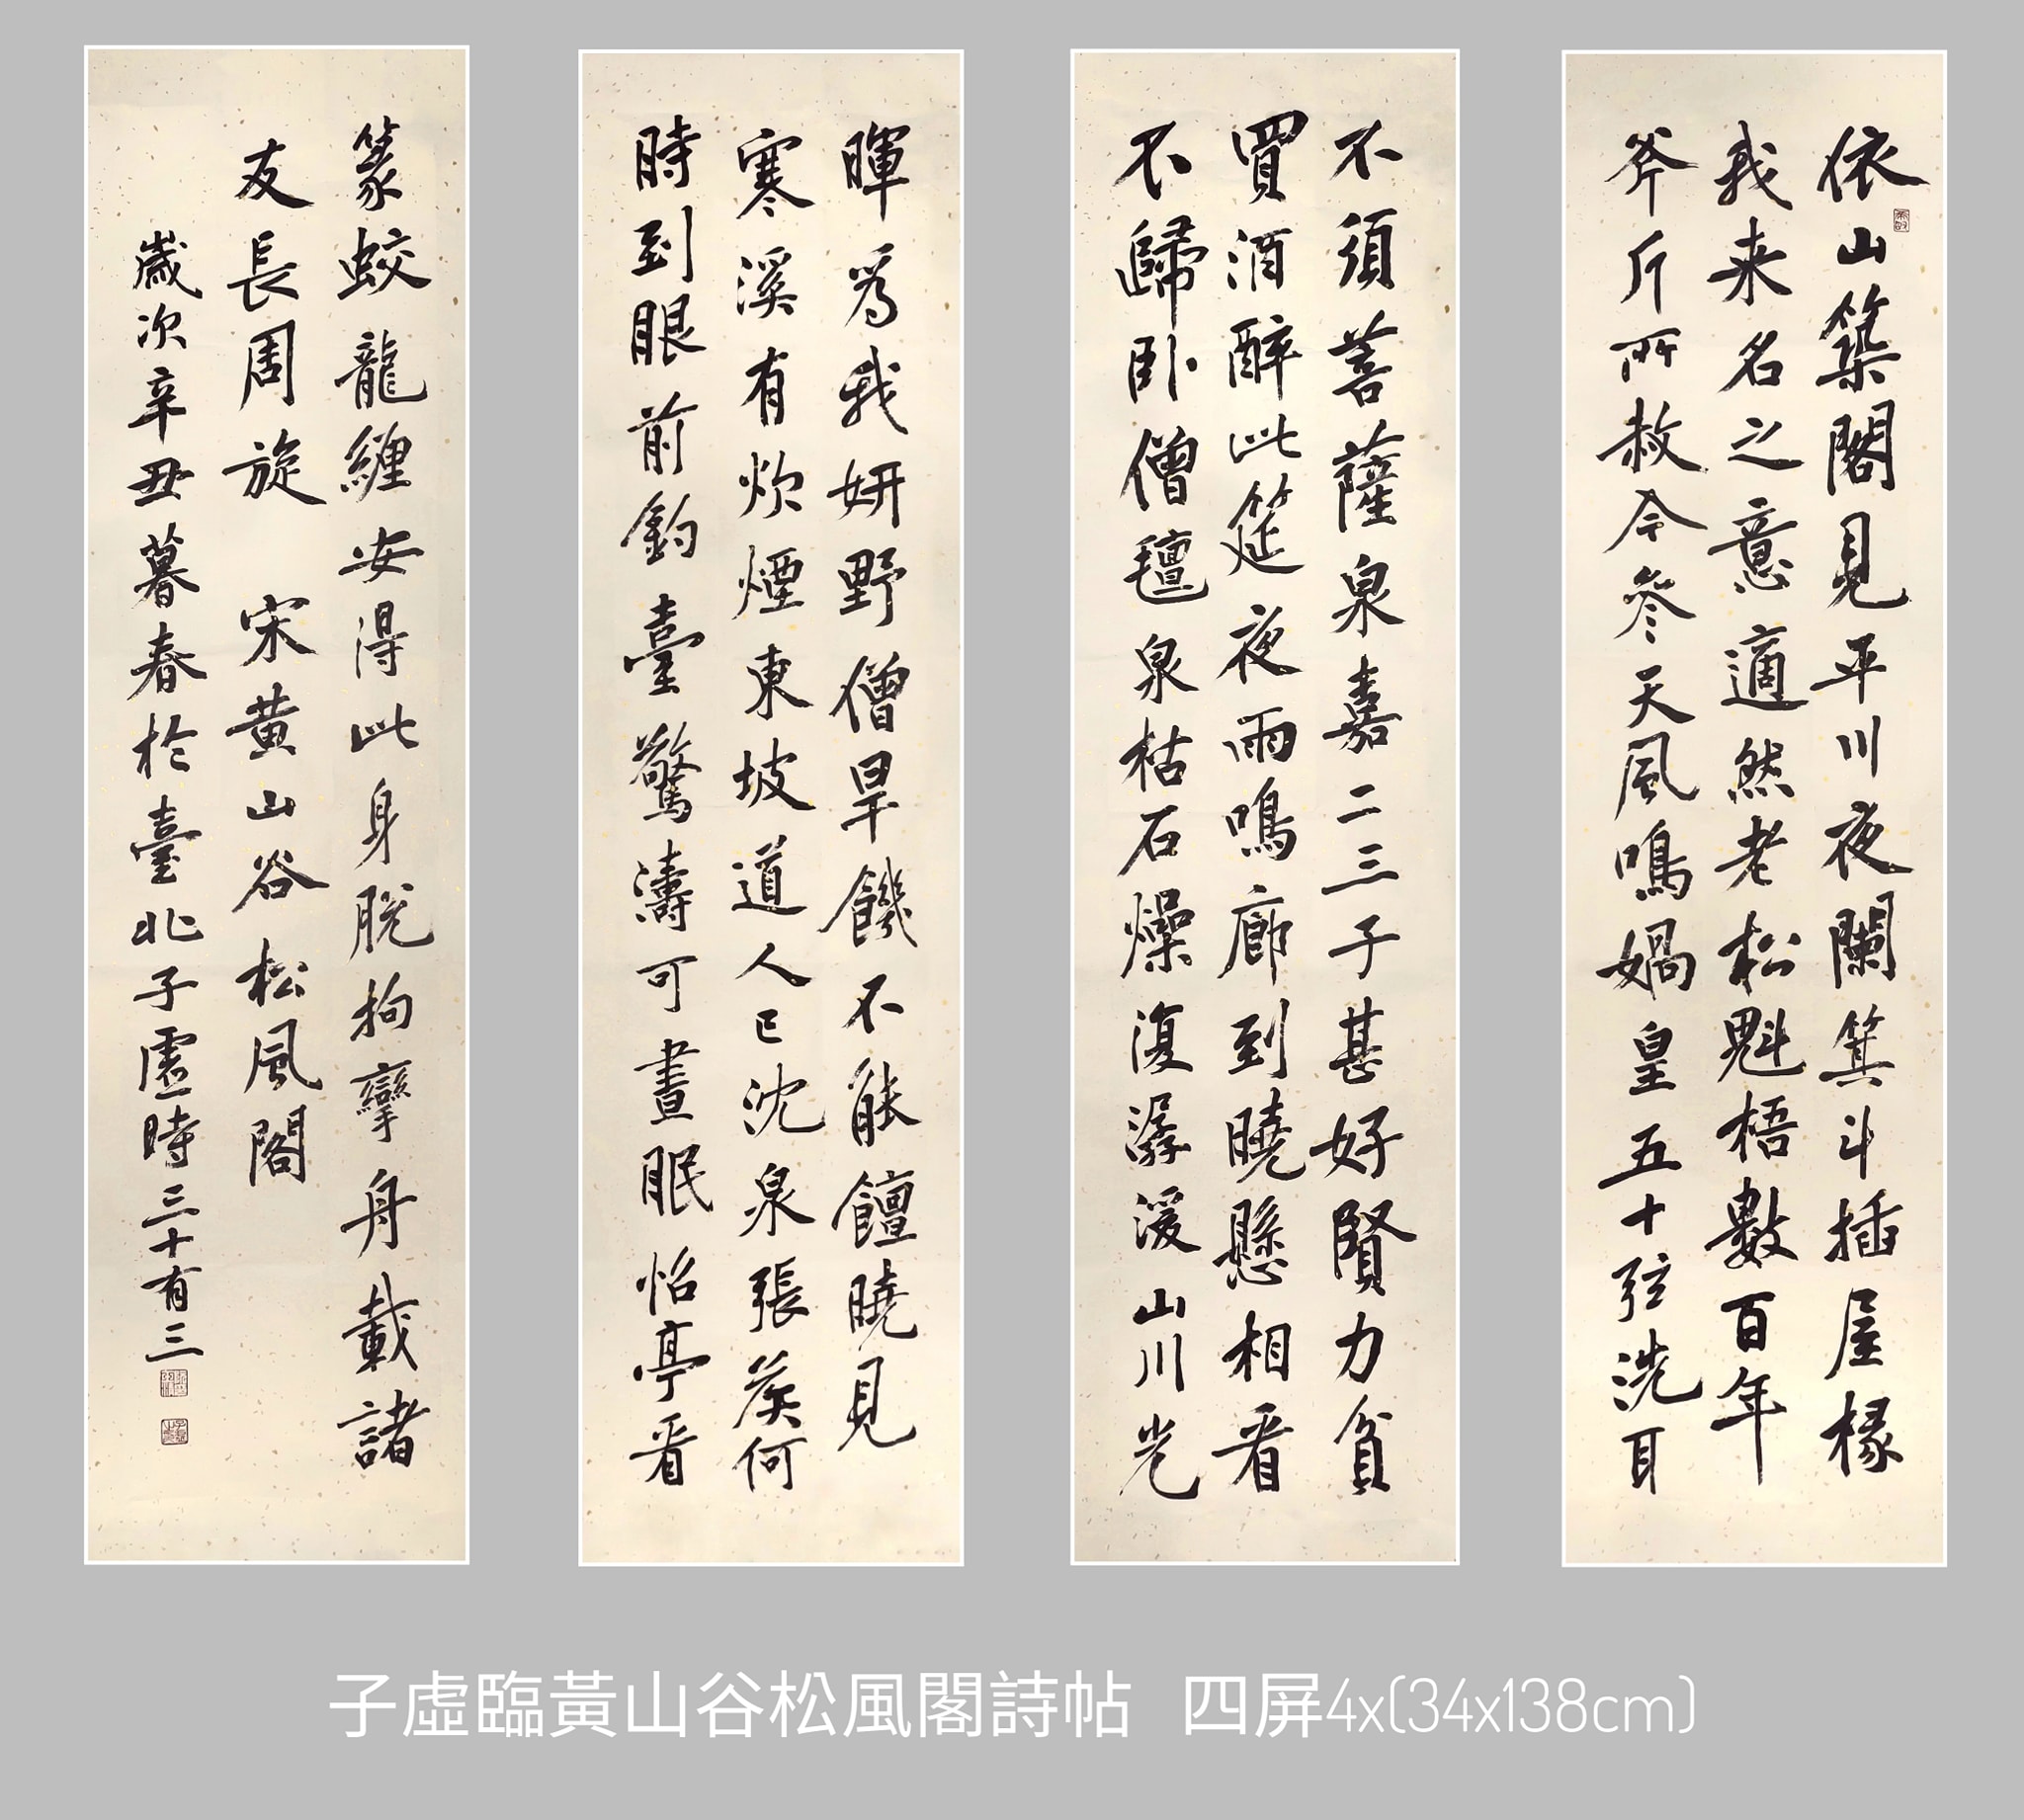 依山築閣見平川夜闌箕斗插屋椽
我来名之意適然老松魁梧數百年
斧斤所赦今參天風鳴媧皇五十弦洗耳
不須菩薩泉嘉二三子甚好賢力貧
買酒醉此筵夜雨鳴廊到曉懸相看
不歸臥僧氊泉枯石燥復潺湲山川光
暉為我妍野僧旱饑不能饘曉見
寒溪有炊煙東坡道人已沈泉張侯何
時到眼前釣臺驚濤可晝眠怡亭看
篆蛟龍纏安得此身脫拘攣舟載諸
友長周旋 宋黃山谷松風閣
歲次辛丑暮春於臺北子虛時三十有三
子虛臨黃山谷松風閣詩帖 四屏4x(34x138cm)